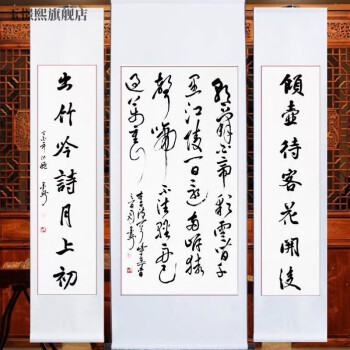 熙旗舰店
傾壺待客花開後
朝辭白帝彩雲間千
里江陵一日還兩岸猿
聲啼不住輕舟已
過萬重山
出竹吟詩月上初